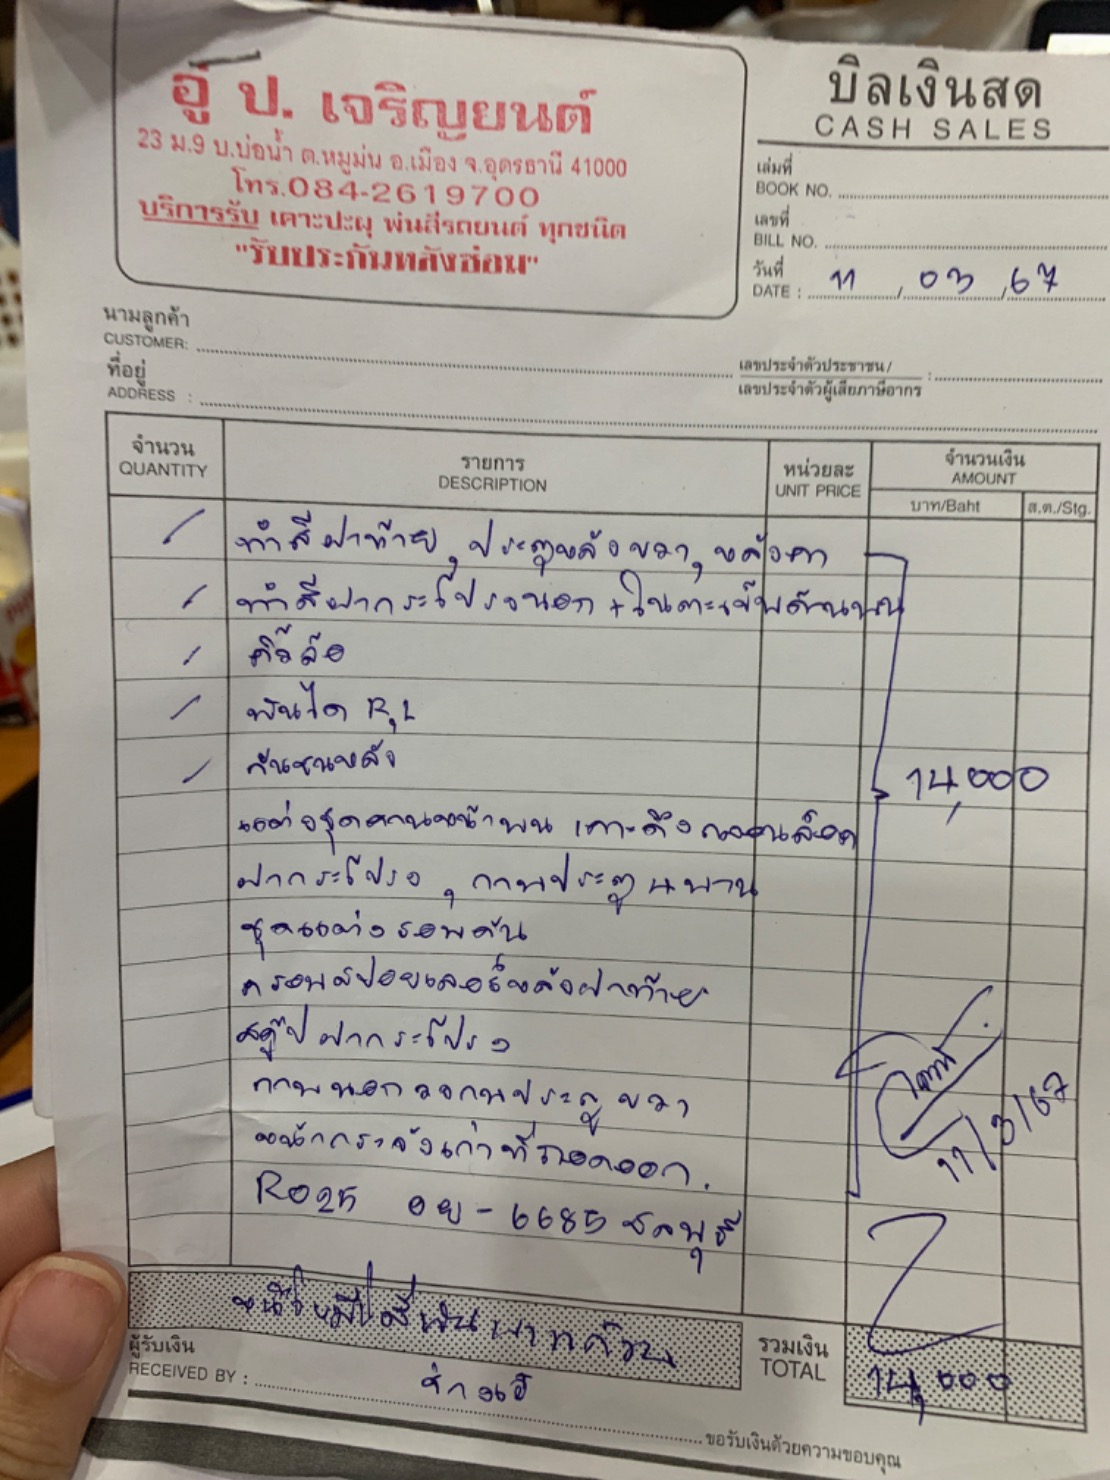 อู่ ป. เจริญยนต์
23 ม.9 บ.บ่อน้ำ ต.หมูม่น อ.เมือง จ.อุดรธานี 41000
โทร.084-2619700
บริการรับ เคาะปะผุ พ่นสีรถยนต์ ทุกชนิด
"รับประกันหลังซ่อม"
บิลเงินสด
CASH SALES
เล่มที่
BOOK NO.
เลขที่
BILL NO.
วันที่
DATE : 11 / 03 / 67
นามลูกค้า
CUSTOMER:
ที่อยู่
ADDRESS :
เลขประจำตัวประชาชน /
เลขประจำตัวผู้เสียภาษีอากร :
จำนวน รายการ หน่วยละ จำนวนเงิน
QUANTITY DESCRIPTION UNIT PRICE AMOUNT
บาท/Baht ส.ต./Stg.
/ ทำสีฝาท้าย, ประตูหลังขวา, หลังคา
/ ทำสีฝากระโปรงนอก + ใน
/ คิ้วล้อ
/ บันได R,L
/ กันชนหลัง 14,000
ฝากระโปรง, กาบประตู 4 บาน
ชุดแต่งรอบคัน
ครอบสปอยเลอร์หลังฝาท้าย
สกู๊ปฝากระโปรง
กาบนอกประตูขวา
หน้ากระจังเก่าที่ถอดออก.
R025 อย - 6685 ชลบุรี
11/3/67
หนึ่งหมื่นสี่พันบาทถ้วน
รวมเงิน
TOTAL 14,000
ผู้รับเงิน
RECEIVED BY :
ขอรับเงินด้วยความขอบคุณ